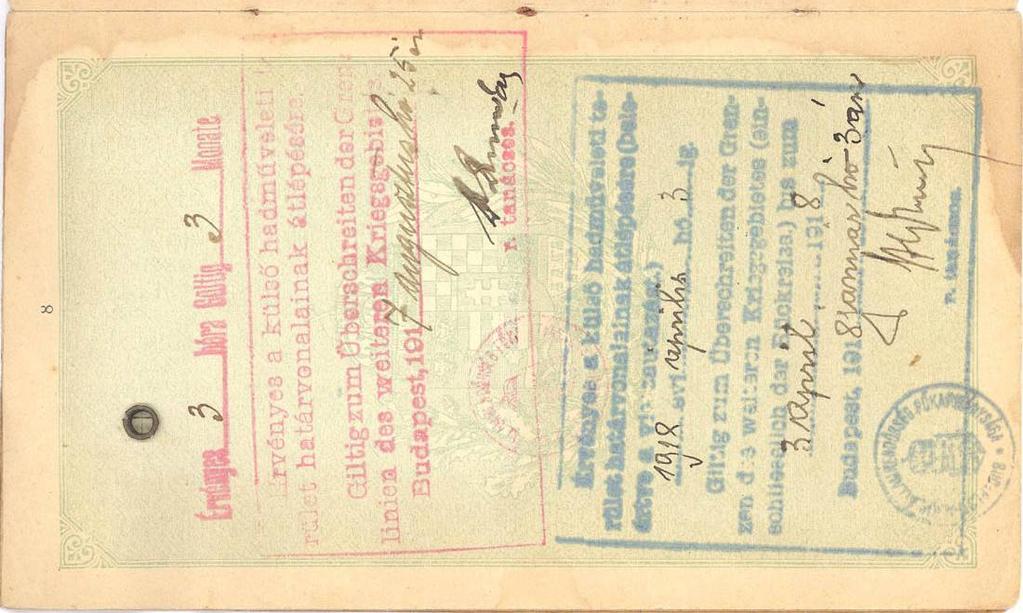 8
Érvényes 3 hóra Giltig 3 Monate
Érvényes a külső hadműveleti te-
rület határvonalainak átlépésére.
Giltig zum Überschreiten der Gren-
linien des weiteren Kriegsgebiets
Budapest, 1917 augusztus hó 25 én
r. tanácsos.
Érvényes a külső hadműveleti te-
rület határvonalainak átlépésére (bele-
értve a
1918 évi április hó 3 ig.
Giltig zum Überschreiten der Gren-
zen des weitern Kriegsgebietes (ein-
schliesslich der bis zum
3 April 1918
Budapest, 1918 január hó 3 án
r. tanácsos.